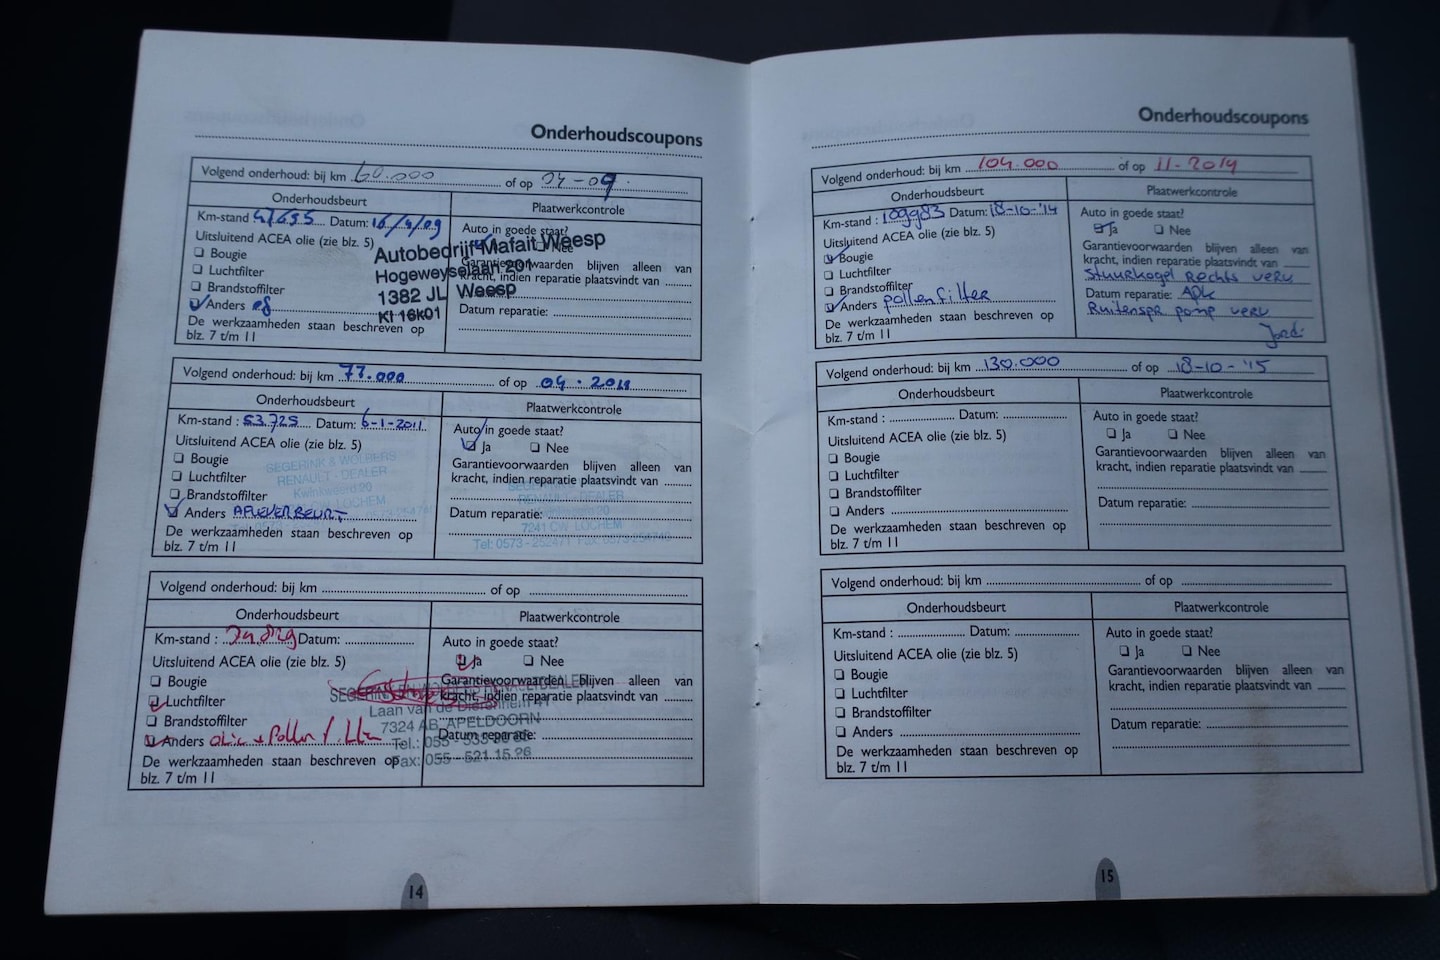 Onderhoudscoupons
Volgend onderhoud: bij km 60.000 of op 04-09
Onderhoudsbeurt
Plaatwerkcontrole
Km-stand Datum: 16/4/09
Auto in goede staat?
Uitsluitend ACEA olie (zie blz. 5)
Nee
Bougie
Luchtfilter
Brandstoffilter
Anders
Garantievoorwaarden blijven alleen van
kracht, indien reparatie plaatsvindt van
Datum reparatie:
De werkzaamheden staan beschreven op
blz. 7 t/m 11
Autobedrijf Mafait Weesp
Hogeweyselaan 201
1382 JL Weesp
KI 16k01
Volgend onderhoud: bij km 77.000 of op 04.2011
Onderhoudsbeurt
Plaatwerkcontrole
Km-stand : 53.725 Datum: 6-1-2011
Auto in goede staat?
Uitsluitend ACEA olie (zie blz. 5)
Ja Nee
Bougie
Luchtfilter
Brandstoffilter
Anders AFLEVERBEURT
Garantievoorwaarden blijven alleen van
kracht, indien reparatie plaatsvindt van
Datum reparatie:
De werkzaamheden staan beschreven op
blz. 7 t/m 11
SEGERINK & WOLBERS
RENAULT - DEALER
Kwinkweerd 20
LOCHEM
RENAULT - DEALER
Kwinkweerd 20
7241 CW LOCHEM
Tel: 0573 - 252471 Fax: 0573
Volgend onderhoud: bij km of op
Onderhoudsbeurt
Plaatwerkcontrole
Km-stand : Datum:
Auto in goede staat?
Uitsluitend ACEA olie (zie blz. 5)
Ja Nee
Bougie
Luchtfilter
Brandstoffilter
Anders olie + Pollen
Garantievoorwaarden blijven alleen van
kracht, indien reparatie plaatsvindt van
Datum reparatie:
De werkzaamheden staan beschreven op
blz. 7 t/m 11
Laan van de Dierenriem
7324 AB APELDOORN
Tel.: 055 - 533
Fax: 055 - 521 15 26
14
Onderhoudscoupons
Volgend onderhoud: bij km 104.000 of op 11-2014
Onderhoudsbeurt
Plaatwerkcontrole
Km-stand : 109983 Datum: 18-10-'14
Auto in goede staat?
Uitsluitend ACEA olie (zie blz. 5)
Ja Nee
Bougie
Luchtfilter
Brandstoffilter
Anders pollenfilter
Garantievoorwaarden blijven alleen van
kracht, indien reparatie plaatsvindt van
Stuurkogel Rechts verv
Datum reparatie: APK
Ruitenspr pomp verv
De werkzaamheden staan beschreven op
blz. 7 t/m 11
Volgend onderhoud: bij km 130.000 of op 18-10-'15
Onderhoudsbeurt
Plaatwerkcontrole
Km-stand : Datum:
Auto in goede staat?
Uitsluitend ACEA olie (zie blz. 5)
Ja Nee
Bougie
Luchtfilter
Brandstoffilter
Anders
Garantievoorwaarden blijven alleen van
kracht, indien reparatie plaatsvindt van
Datum reparatie:
De werkzaamheden staan beschreven op
blz. 7 t/m 11
Volgend onderhoud: bij km of op
Onderhoudsbeurt
Plaatwerkcontrole
Km-stand : Datum:
Auto in goede staat?
Uitsluitend ACEA olie (zie blz. 5)
Ja Nee
Bougie
Luchtfilter
Brandstoffilter
Anders
Garantievoorwaarden blijven alleen van
kracht, indien reparatie plaatsvindt van
Datum reparatie:
De werkzaamheden staan beschreven op
blz. 7 t/m 11
15